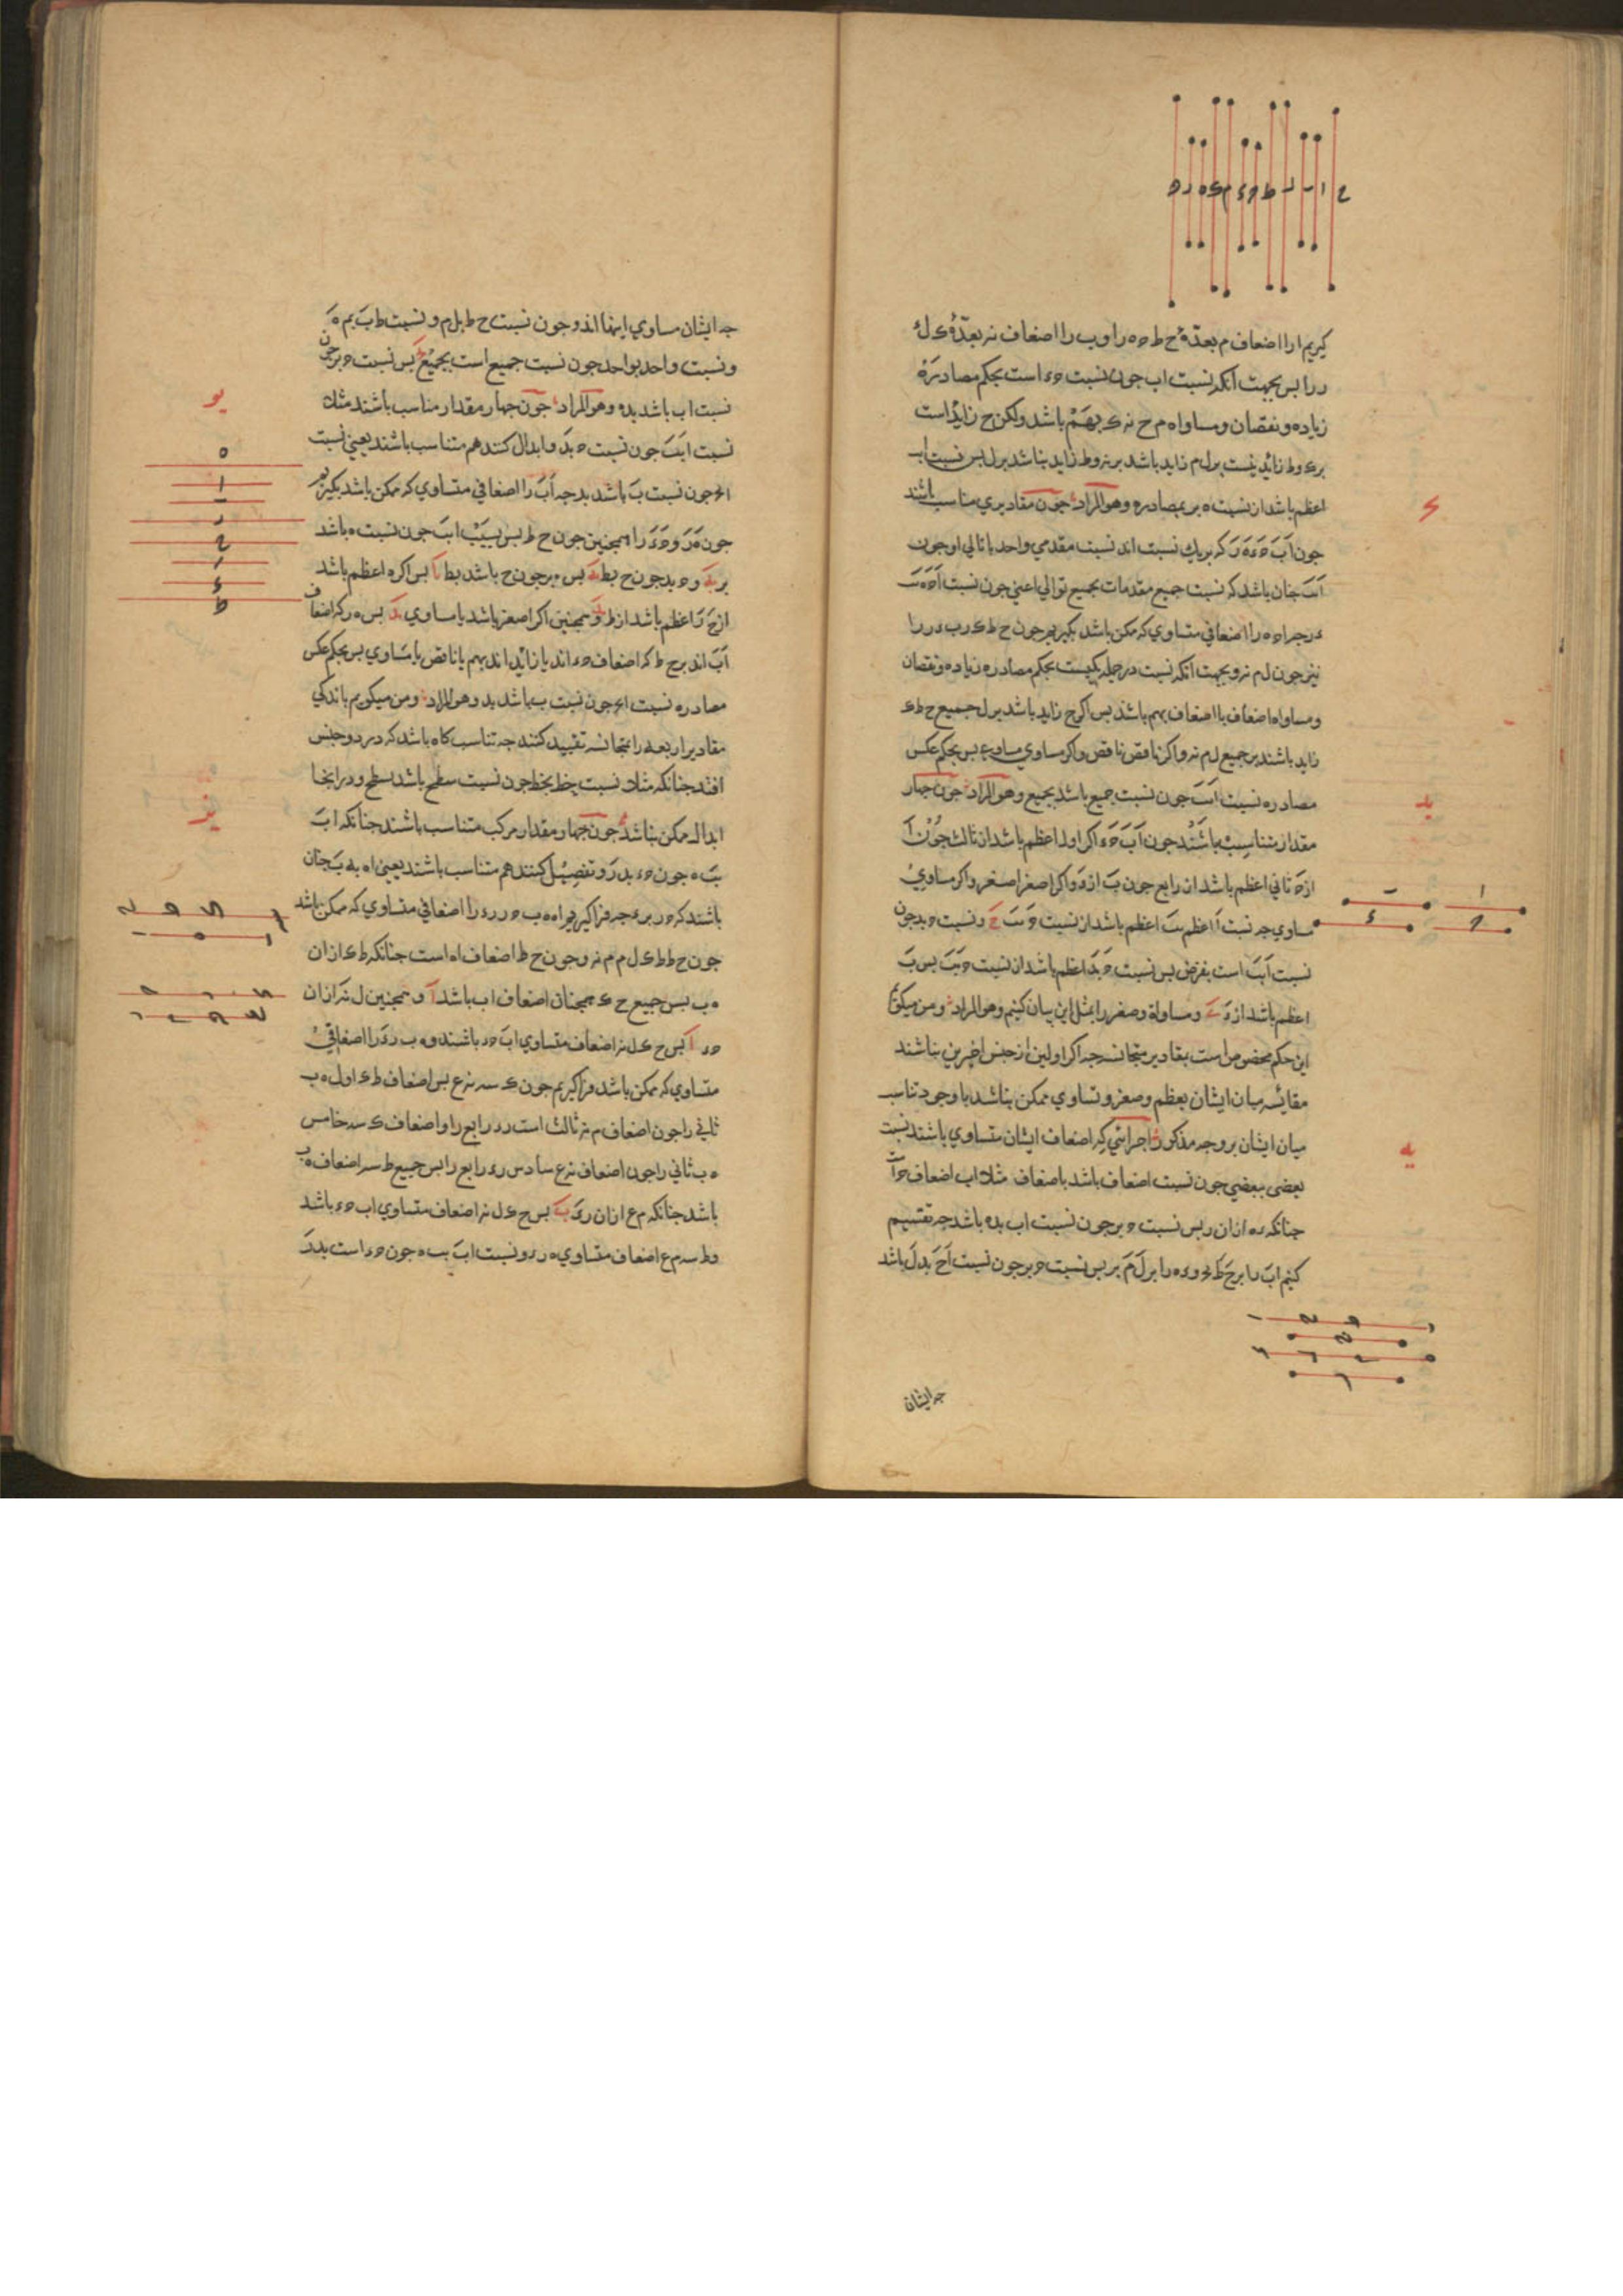 کیریم ارا اضعاف م بعدّهٔ ح ط ح ه را و ب را اضعاف نر بعدّهٔ ک ل
د ر را بس بجهت آنکه نسبت اب جون نسبت ح ء است بحکم مصادره
زیاده و نقصان و مساواه م ح نه ک بهم باشد ولکن ح زاید است
بر ک و ط زاید نیست بر ل م زاید باشد بر نه و ط زاید نباشد بر ل بس نسبت اب
اعظم باشد از نسبت ه بر بمصادره وهو المراد جون مقادیری مناسب باشند
جون اب ح ء ه ر که بریك نسبت اند نسبت مقدمی واحد با تالی او جون
اب جنان باشد که نسبت جمیع مقدمات بجمیع توالی اعنی جون نسبت
ء ر جه ا ح ه را اضعافی متساوی که ممکن باشد بکیریم جون ح ط ک و ب ء ر را
نیز جون ل م نر و بجهت آنکه نسبت در جمله یکیست بحکم مصادره زیاده و نقصان
و مساواه اضعاف با اضعاف بهم باشد بس اکر ح زاید باشد بر ل جمیع ح ط ک
زاید باشند بر جمیع ل م نر و اکر ناقص ناقص و اکر مساوی مساوی بس بحکم عکس
مصادره نسبت اب جون نسبت جمیع باشد بجمیع وهو المراد جون جهار
مقدار متناسب باشند جون اب ح ء اکر اول اعظم باشد از ثالث جون ا
از ح ثانی اعظم باشد از رابع جون ب از ء و اکر اصغر اصغر و اکر مساوی
مساوی جه نسبت ا اعظم ب اعظم باشد از نسبت ح ب ح و نسبت ح بد جون
نسبت اب است بفرض بس نسبت ح بد اعظم باشد از نسبت ح بب بس ب
اعظم باشد از ء ی و مساواة و صغر را بمثل این بیان کنیم وهو المراد و من میکویم
این حکم مخصوص است بمقادیر متجانسه جه اکر اولین از جنس اخرین نباشند
مقائسه میان ایشان بعظم و صغر و تساوی ممکن نباشد با وجود تناسب
میان ایشان بر وجه مذکور اجزائی که اضعاف ایشان متساوی باشند نسبت
بعضی ببعضی جون نسبت اضعاف باشد باضعاف مثلا اب اضعاف ح است
جنانکه ء ه ازان ر بس نسبت ح بر جون نسبت اب بده باشد جه تقسیم
کنیم اب را بر ح ط و ء ه را بر ل م بر بس نسبت ح بر جون نسبت اح بدل باشد
جه ایشان
ک
ید
یه
جه ایشان مساوی اینها اند و جون نسبت ح ط بل م و نسبت ط ب بم ه
و نسبت واحد بواحد جون نسبت جمیع است بجمیع بس نسبت ح بر جون
نسبت اب باشد بده وهو المراد جون جهار مقدار مناسب باشند مثلا
نسبت اب جون نسبت ح بد و ابدال کنند هم متناسب باشند یعنی نسبت
اح جون نسبت ب باشد بد جه اب را اضعافی متساوی که ممکن باشد بکیریم
جون ه ر و ح ء را همجنین جون ح ط بس نسبت اب جون نسبت ه باشد
بر و ح بد جون ح بط بس ه بر جون ح باشد بط بس اکر ه اعظم باشد
از ح ر اعظم باشد از ط و همجنین اکر اصغر باشد یا مساوی بس ه ر که اضعاف
اب اند بر ح ط که اضعاف ح ء اند یا زائد اند بهم یا ناقص یا مساوی بس بحکم عکس
مصادره نسبت اح جون نسبت ب باشد بد وهو المراد و من میکویم باندکی
مقادیر اربعه را بتجانس تقیید کنند جه تناسب کاه باشد که در دو جنس
افتد جنانکه مثلا نسبت خط بخط جون نسبت سطح باشد بسطح و در اینجا
ابدال ممکن نباشد جون جهار مقدار مرکب متناسب باشند جنانکه اب
ب ه جون ح ء بدر و تفصیل کنند هم متناسب باشند یعنی اه به ب جنان
باشند که ح ر بر ء جه فرا کیریم اه ه ب ح ر ر ء را اضعافی متساوی که ممکن باشد
جون ح ط ط ک ل م م نر و جون ح ط اضعاف اه است جنانکه ط ک ازان
ه ب بس جمیع ح ک همجنان اضعاف اب باشد و همجنین ل نر ازان
ح ء بس ح ک ل نر اضعاف متساوی اب ح ء باشند و ه ب ر ء را اضعافی
متساوی که ممکن باشد فرا کیریم جون ک سه نر ع بس اضعاف ط ک اول ه ب
ثانی را جون اضعاف م نر ثالث است ر ء رابع را و اضعاف ک سه خامس
ه ب ثانی را جون اضعاف نر ع سادس ر ء رابع را بس جمیع ط سه اضعاف ه ب
باشد جنانکه م ع ازان ر ء بس ح ک ل نر اضعاف متساوی اب ح ء باشد
و ط سه م ع اضعاف متساوی ه ر ء و نسبت اب ب ه جون ح ء است بدر
یو
یز